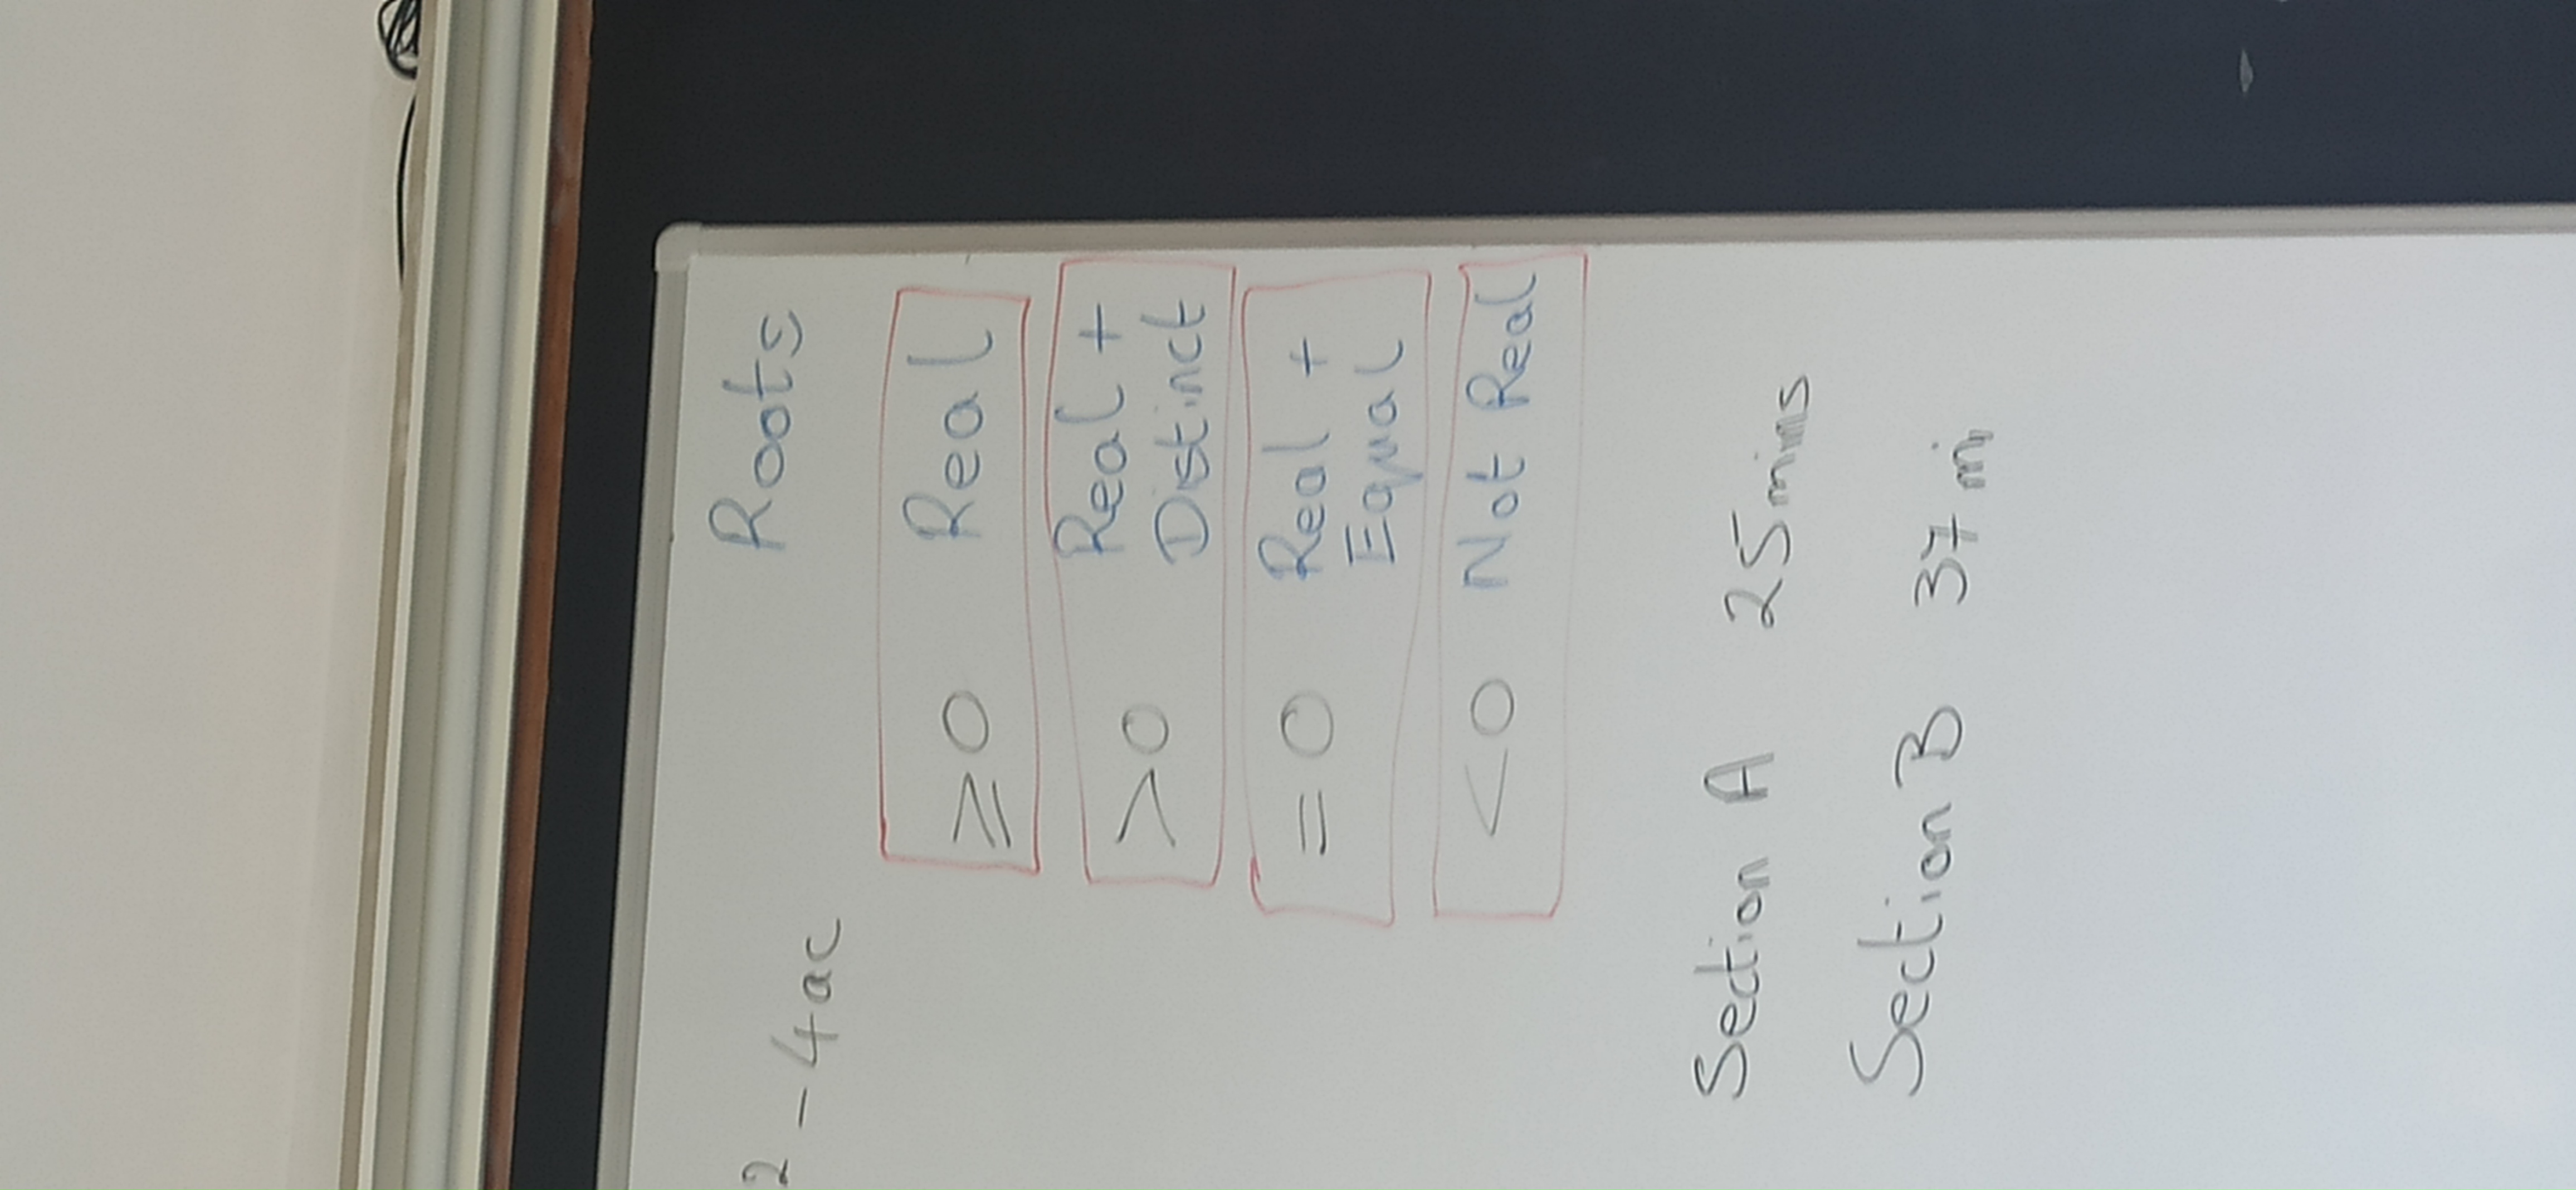 Roots
² - 4ac
≥0 Real
>0 Real +
Distinct
= 0 Real +
Equal
<0 Not Real
Section A 25mins
Section B 37 mi